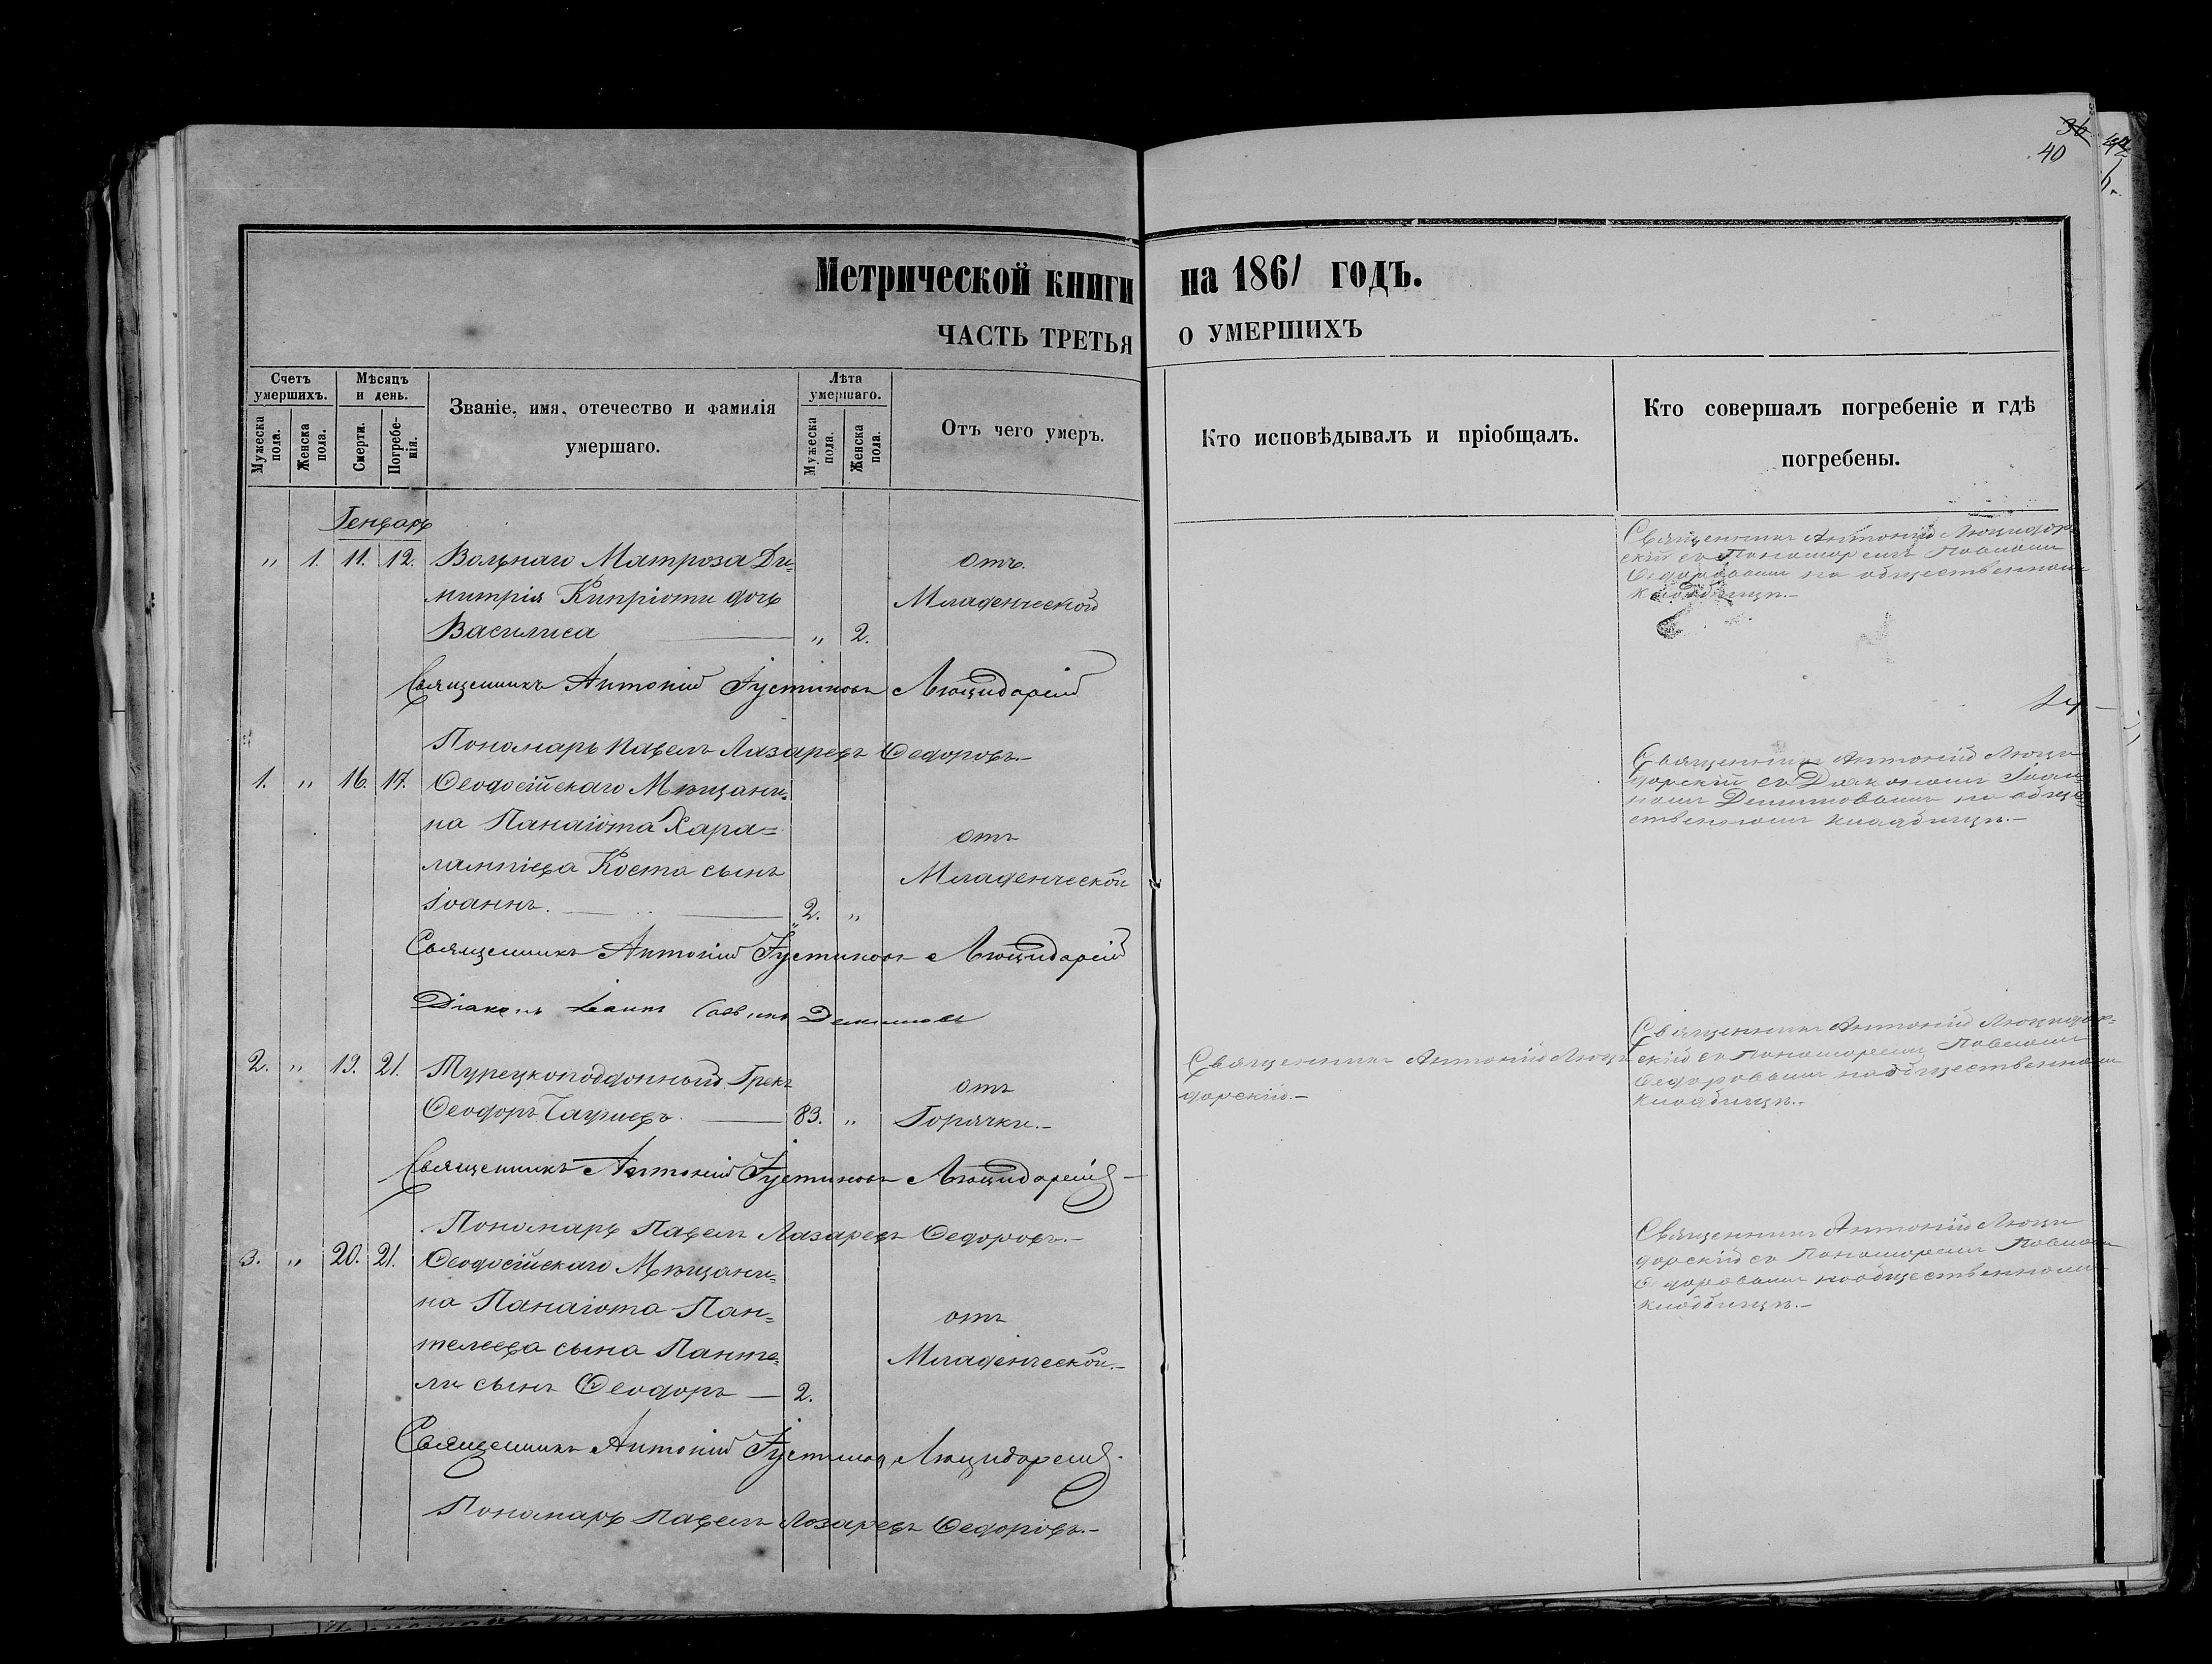 36
40
Метрической книги на 1861 годъ.
ЧАСТЬ ТРЕТЬЯ О УМЕРШИХЪ
Счетъ умершихъ.
Мужеска пола.
Женска пола.
Мѣсяцъ и день.
Смерти.
Погребенія.
Званіе, имя, отечество и фамилія
умершаго.
Лѣта умершаго.
Мужеска пола.
Женска пола.
Отъ чего умеръ.
Кто исповѣдывалъ и пріобщалъ.
Кто совершалъ погребеніе и гдѣ
погребены.
Генварь
„ 1. 11. 12. Вольнаго Матроза Ди-
митрія Кипріоти дочь
Василиса „ 2.
отъ
Младенческой
Священникъ Антоній Люцидор
скій съ Пономоремъ Павломъ
Ѳедоровымъ на общественномъ
кладбищѣ.-
Священникъ Антоній Іустиновъ Люцидарскій
Пономарь Павелъ Лазаревъ Ѳедоровъ.-
1. „ 16. 17. Ѳеодосійскаго Мѣщани-
на Панаіота Хара=
лампіева Коста сынъ
Іоаннъ. 2. „
отъ
Младенческой
Священникъ Антоній Люци
дорскій съ Діакономъ Іоан-
номъ на обще
ственномъ кладбищѣ.-
Священникъ Антоній Іустиновъ Люцидарскій
Діаконъ Іоаннъ
2. „ 19. 21. Турецкоподданный Грекъ
Ѳеодоръ 83. „
отъ
Горячки.-
Священникъ Антоній Люци
дорскій.-
Священникъ Антоній Люцидор-
скій съ Пономоремъ Павломъ
Ѳедоровымъ на общественномъ
кладбищѣ.-
Священникъ Антоній Іустиновъ Люцидарскій-
Пономарь Павелъ Лазаревъ Ѳедоровъ.-
3. „ 20. 21. Ѳеодосійскаго Мѣщани-
на Панаіота Пан-
телеева сына Панте-
ли сынъ Ѳеодоръ — 2.
отъ
Младенческой.-
Священникъ Антоній Люци
дорскій съ Пономоремъ Павломъ
Ѳедоровымъ на общественномъ
кладбищѣ.-
Священникъ Антоній Іустиновъ Люцидарскій.
Пономарь Павелъ Лозаревъ Ѳедоровъ.-